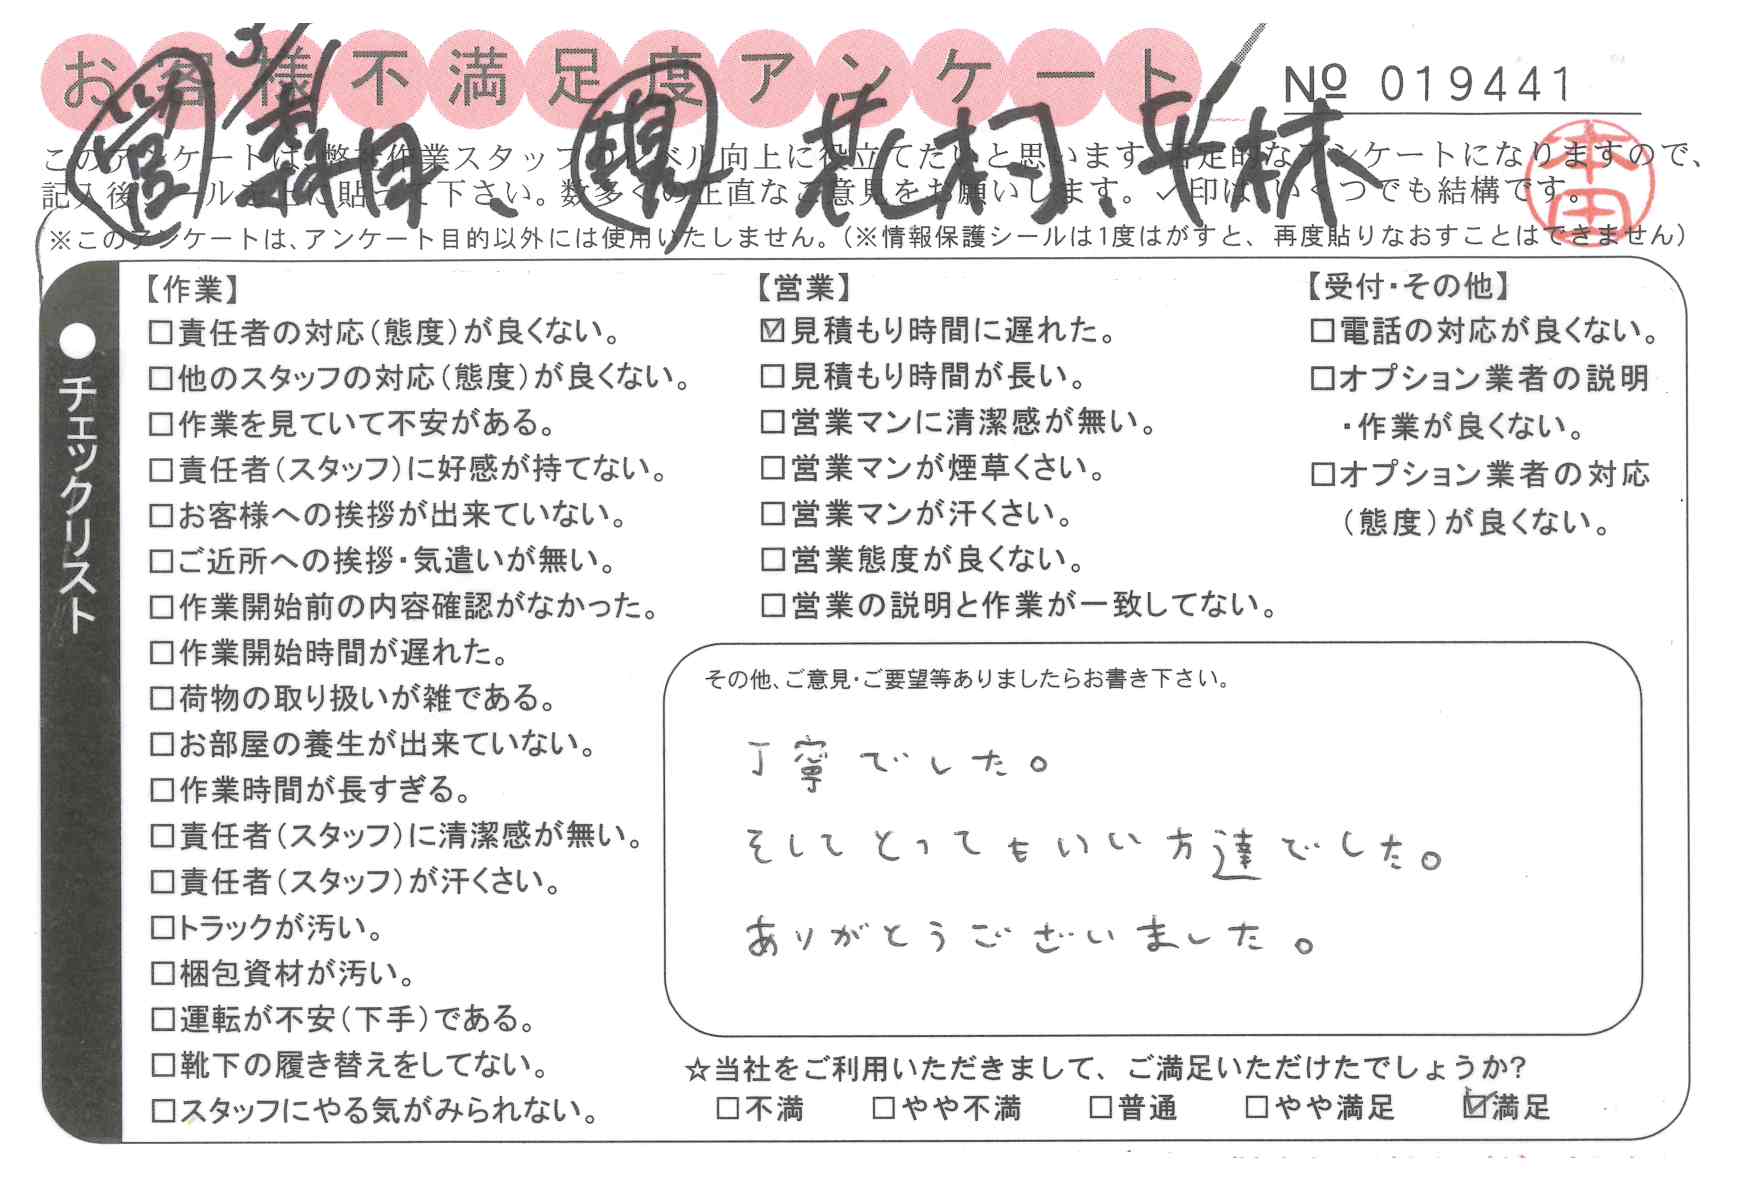 お客様不満足度アンケート
№ 019441
3/1
営 森田、現 花村、平林
本田
このアンケートは、弊社作業スタッフのレベル向上に役立てたいと思います。否定的なアンケートになりますので、
記入後シールを上に貼って下さい。数多くの正直なご意見をお願いします。✓印は、いくつでも結構です。
※このアンケートは、アンケート目的以外には使用いたしません。(※情報保護シールは1度はがすと、再度貼りなおすことはできません)
●チェックリスト
【作業】
□責任者の対応(態度)が良くない。
□他のスタッフの対応(態度)が良くない。
□作業を見ていて不安がある。
□責任者(スタッフ)に好感が持てない。
□お客様への挨拶が出来ていない。
□ご近所への挨拶・気遣いが無い。
□作業開始前の内容確認がなかった。
□作業開始時間が遅れた。
□荷物の取り扱いが雑である。
□お部屋の養生が出来ていない。
□作業時間が長すぎる。
□責任者(スタッフ)に清潔感が無い。
□責任者(スタッフ)が汗くさい。
□トラックが汚い。
□梱包資材が汚い。
□運転が不安(下手)である。
□靴下の履き替えをしてない。
□スタッフにやる気がみられない。
【営業】
☑見積もり時間に遅れた。
□見積もり時間が長い。
□営業マンに清潔感が無い。
□営業マンが煙草くさい。
□営業マンが汗くさい。
□営業態度が良くない。
□営業の説明と作業が一致してない。
【受付・その他】
□電話の対応が良くない。
□オプション業者の説明
・作業が良くない。
□オプション業者の対応
(態度)が良くない。
その他、ご意見・ご要望等ありましたらお書き下さい。
丁寧でした。
そしてとってもいい方達でした。
ありがとうございました。
☆当社をご利用いただきまして、ご満足いただけたでしょうか?
□不満 □やや不満 □普通 □やや満足 ☑満足